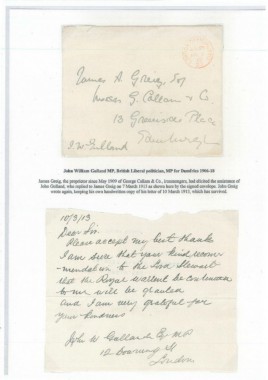 James S. Greig Esq
Messrs G. Cullam & Co
13 Grosvenor Place
Edinburgh
J. W. Gulland
John William Gulland MP, British Liberal politician, MP for Dumfries 1906-18
James Greig, the proprietor since May 1909 of George Cullam & Co., ironmongers, had elicited the assistance of
John Gulland, who replied to James Greig on 7 March 1913 as shown here by the signed envelope. John Greig
wrote again, keeping his own handwritten copy of his letter of 10 March 1913, which has survived.
10/3/13
Dear Sir.
Please accept my best thanks
I am sure that your kind recom-
mendation to the Lord Stewart
that the Royal warrant be continued
to me will be granted
and I am very grateful for
your kindness
John W Gulland Esq MP
12 Downing St
London